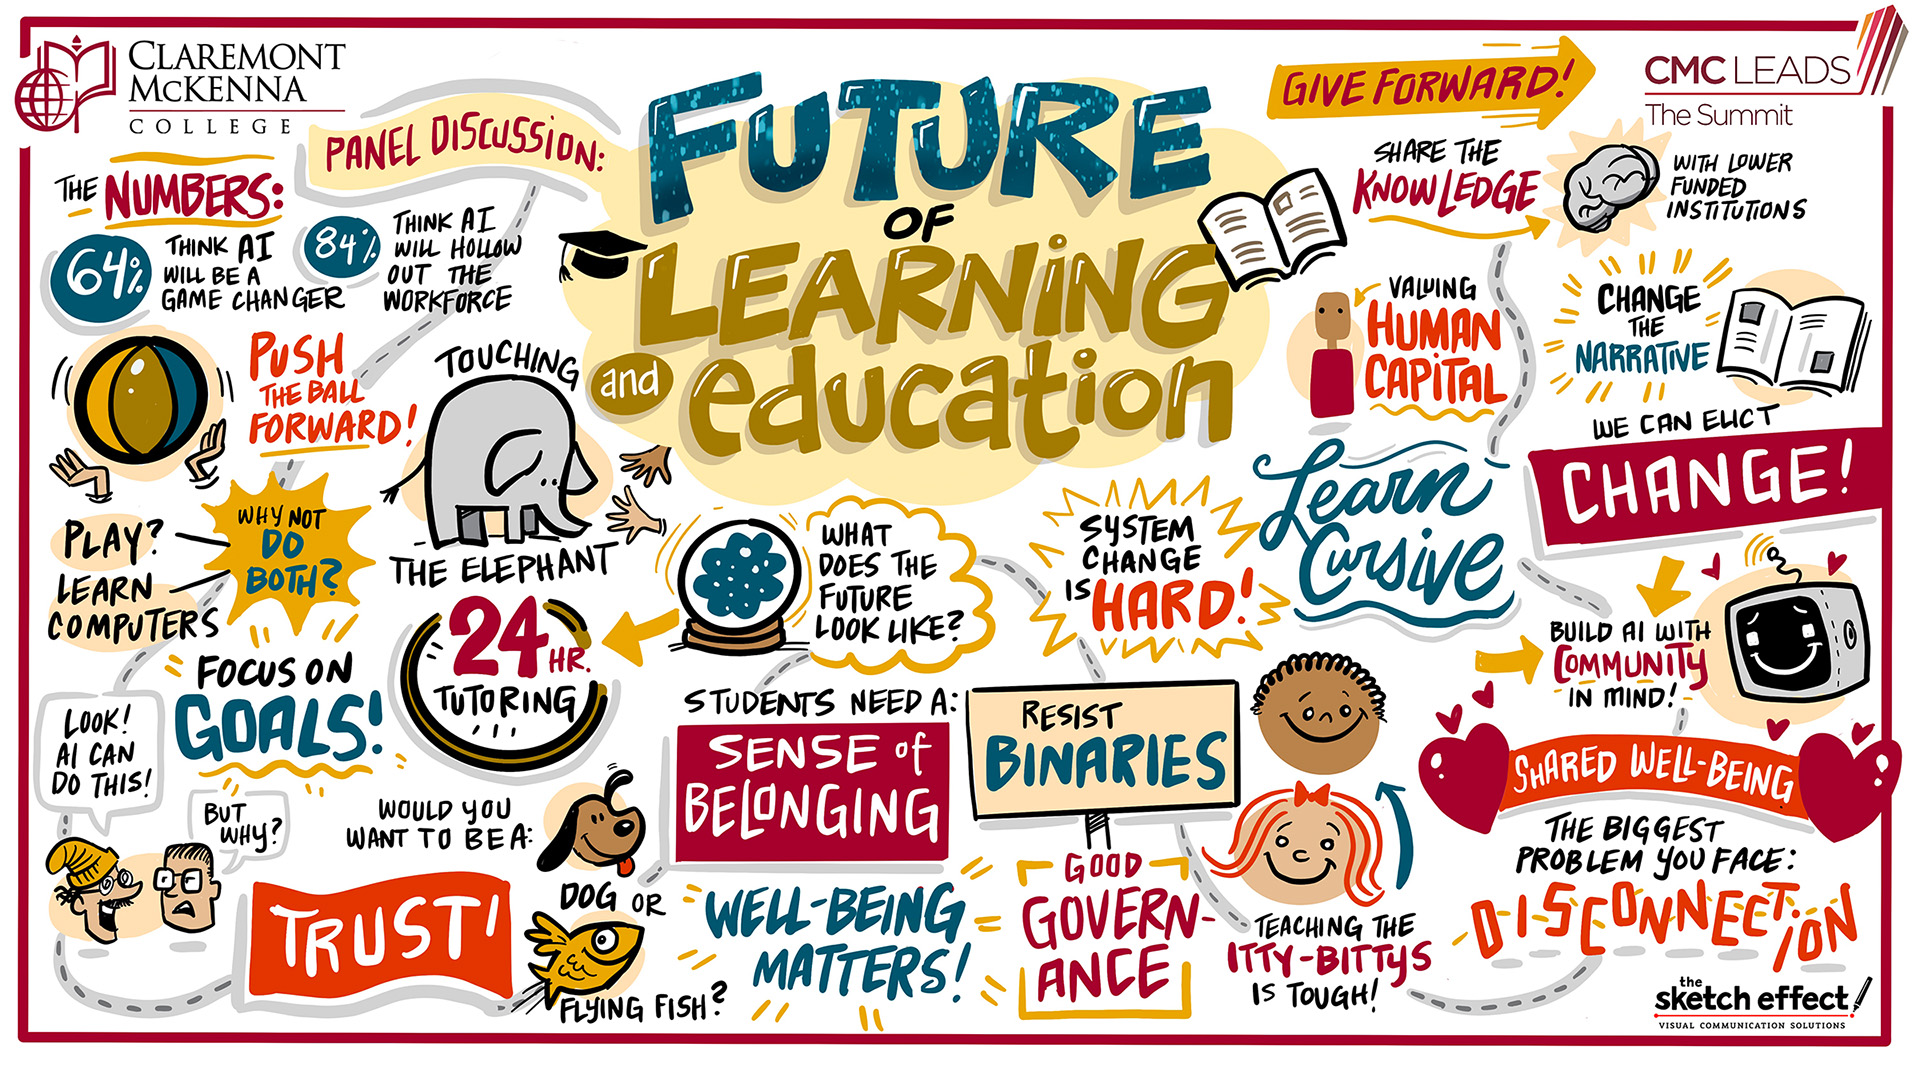 CLAREMONT
MCKENNA
COLLEGE
PANEL DISCUSSION:
FUTURE
OF
LEARNING
and
education
GIVE FORWARD!
CMC LEADS
The Summit
THE NUMBERS:
64%
THINK AI
WILL BE A
GAME CHANGER
84%
THINK AI
WILL HOLLOW
OUT THE
WORKFORCE
PUSH
THE BALL
FORWARD!
TOUCHING
THE ELEPHANT
SHARE THE
KNOWLEDGE
WITH LOWER
FUNDED
INSTITUTIONS
VALUING
HUMAN
CAPITAL
CHANGE
THE
NARRATIVE
WE CAN ELICT
CHANGE!
PLAY?
LEARN
COMPUTERS
WHY NOT
DO
BOTH?
24 HR.
TUTORING
WHAT
DOES THE
FUTURE
LOOK LIKE?
SYSTEM
CHANGE
IS HARD!
Learn
Cursive
BUILD AI WITH
COMMUNITY
IN MIND!
FOCUS ON
GOALS!
LOOK!
AI CAN
DO THIS!
BUT
WHY?
STUDENTS NEED A:
SENSE of
BELONGING
RESIST
BINARIES
SHARED WELL-BEING
WOULD YOU
WANT TO BE A:
DOG OR
FLYING FISH?
TRUST!
WELL-BEING
MATTERS!
GOOD
GOVERN-
ANCE
TEACHING THE
ITTY-BITTYS
IS TOUGH!
THE BIGGEST
PROBLEM YOU FACE:
DISCONNECTION
the
sketch effect
VISUAL COMMUNICATION SOLUTIONS